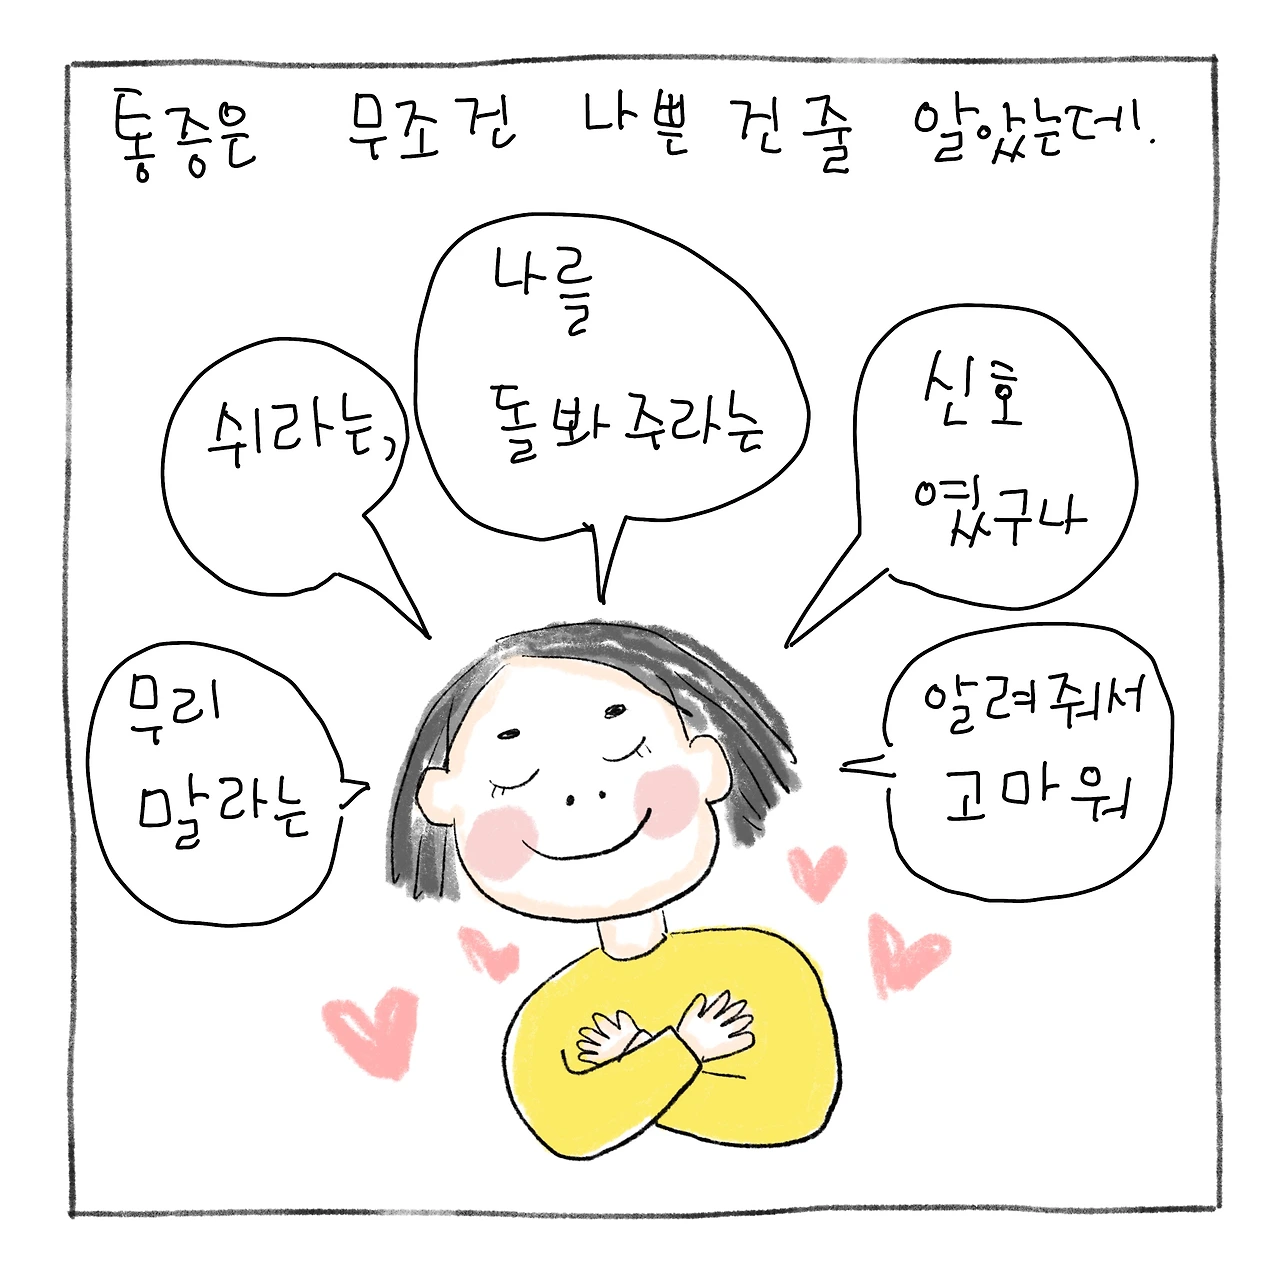 통증은 무조건 나쁜 건 줄 알았는데!.
무리
말라는
쉬라는,
나를
돌봐주라는
신호
였구나
알려줘서
고마워